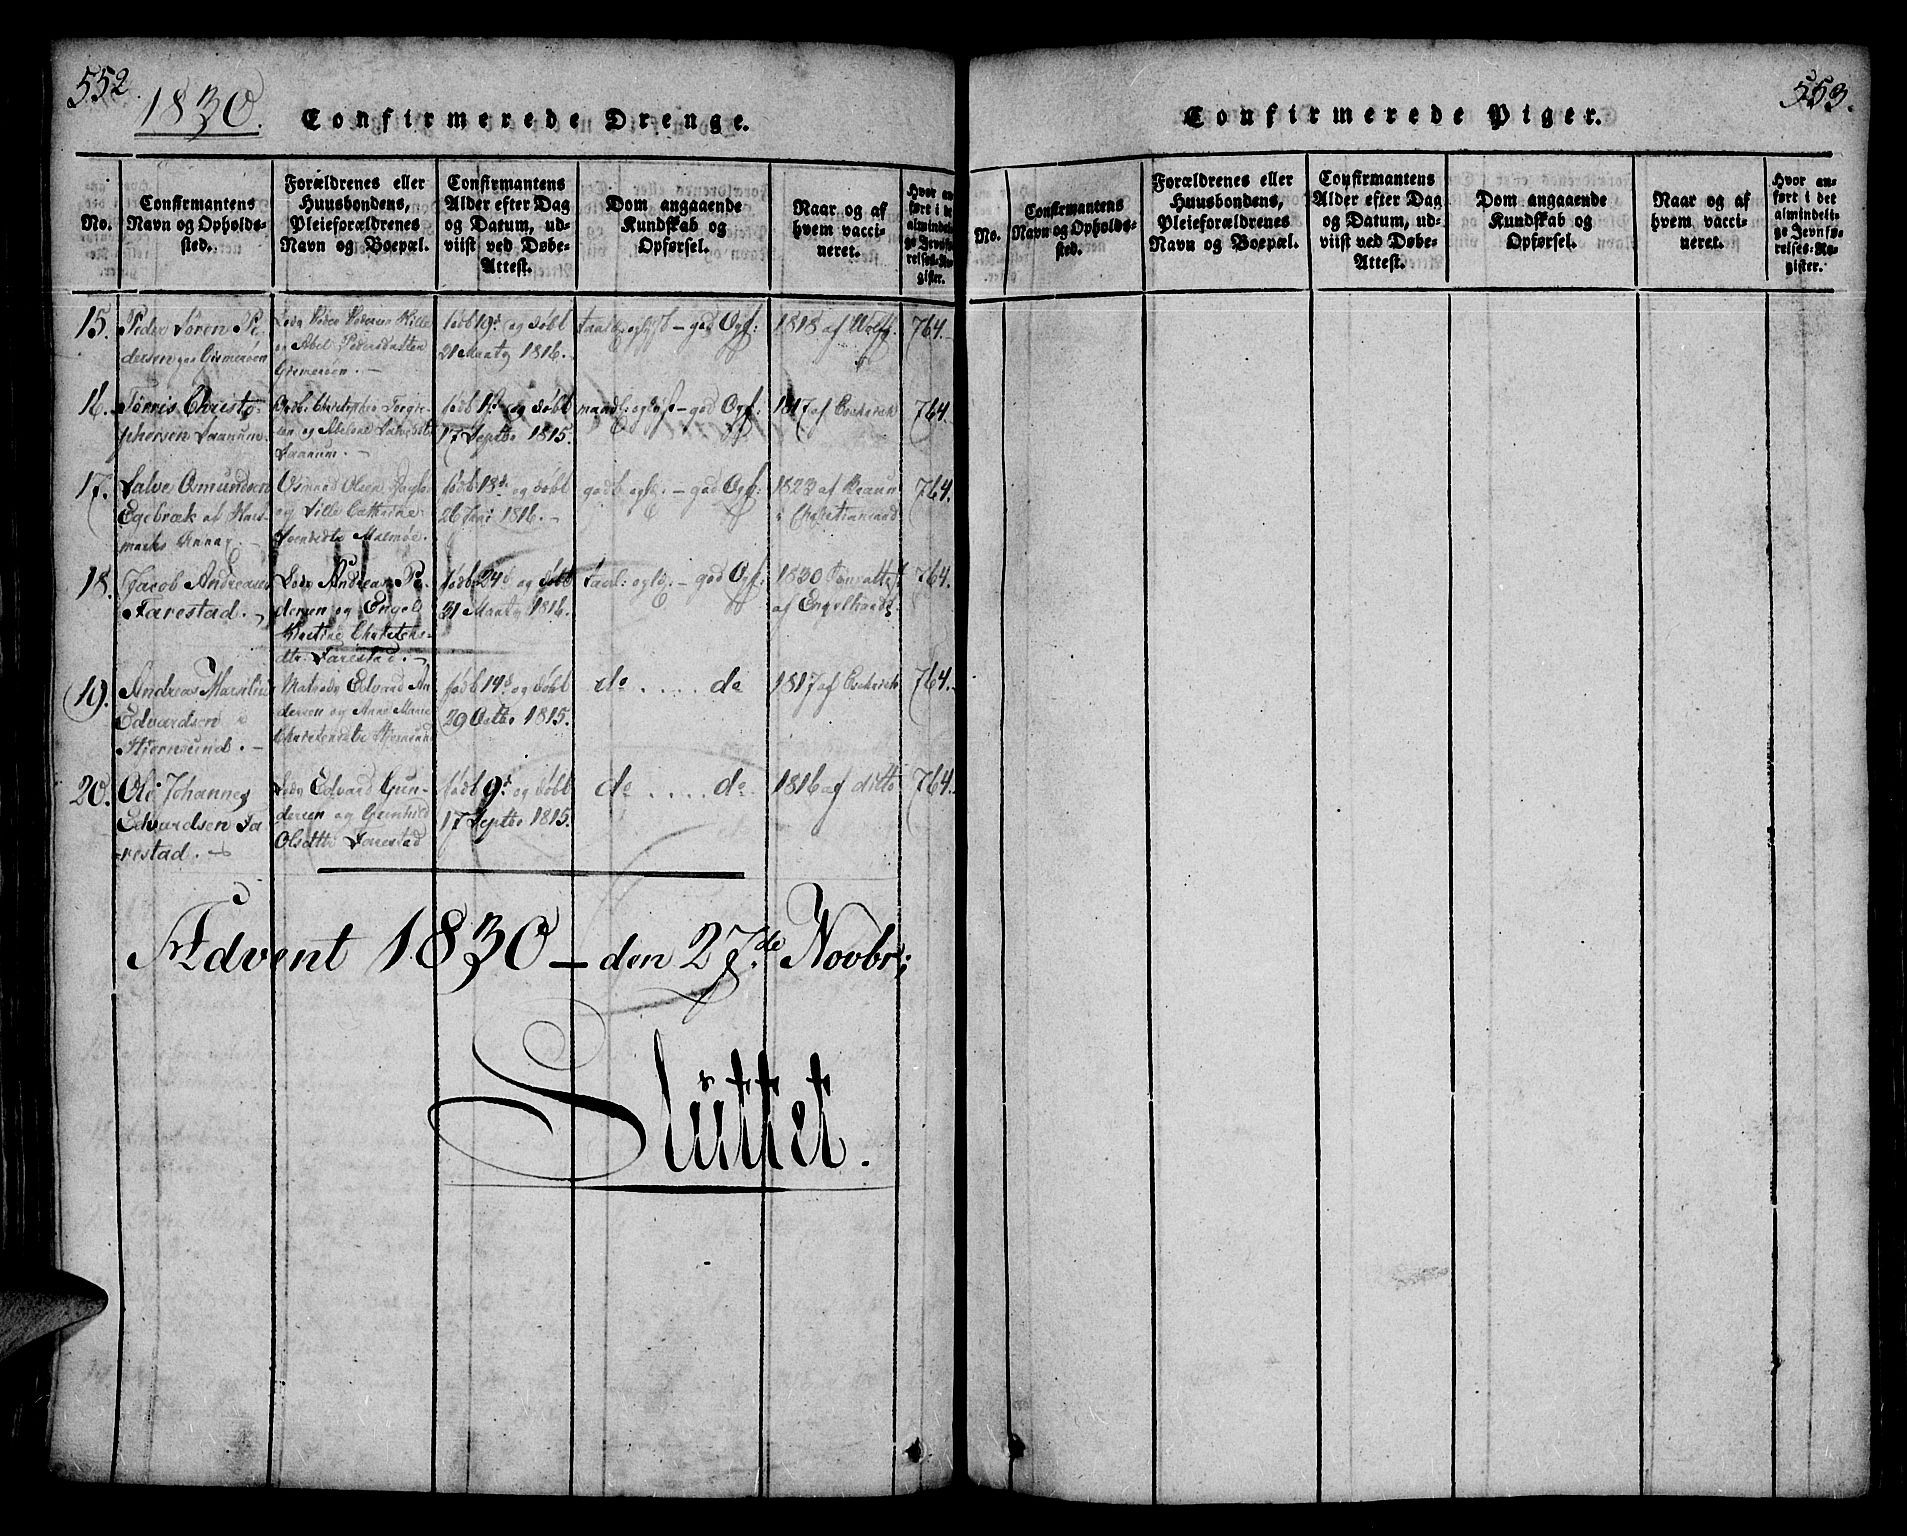 552
1830.
Confirmerede Drenge.
No.
Confirmantens
Navn og Opholds-
sted.
Forældrenes eller
Huusbondens,
Pleieforældrenes
Navn og Boepæl.
Confirmantens
Alder efter Dag
og Datum, ud-
viist ved Døbe-
Attest.
Dom angaaende
Kundskab og
Opførsel.
Naar og af
hvem vacci-
neret.
Hvor an-
ført i det
almindeli-
ge Jevnfø-
relses-Re-
gister.
15. Peder Sören Pe-
dersen
og Abel Pedersdatter
födt 19d og döbt
21 Marty 1816.
god Opf:
1818 af Wolff
764.
16. Törris Christo-
phersen Faanum
og
Faanum.
födt og döbt
17 Septbr 1815.
god Opf:
1817 af
764.
17. Salve Osmundsen
Egebræk af
Osmund Olsen
og Sille Cathrine
födt 18d og döbt
26 Jani 1816.
god Opf:
1823 af
i Christiansand
764.
18. Jacob Andreasen
Farestad.
Andreas Pe-
dersen og Engel
Kirstine Christens-
dtr Farestad.
födt 24d og döbt
31 Marty 1816.
god Opf:
1830
af Engelhardt
764.
19. Andreas
Edvardsen
Hjernsund.
Edvard An-
dersen og Anne Marie
födt 14d og döbt
29 Octbr 1815.
do .... do
1817 af
764.
20. Ole Johannes
Edvardsen Fa-
restad.
Edvard Gun-
dersen og Gunhild
Olsdttr Farestad
födt 9d og döbt
17 Septbr 1815.
do .... do
1816 af ditto
764.
Advent 1830 – den 27de Novbr;
Sluttet.
553.
Confirmerede Piger.
No.
Confirmantens
Navn og Opholds-
sted.
Forældrenes eller
Huusbondens,
Pleieforældrenes
Navn og Boepæl.
Confirmantens
Alder efter Dag
og Datum, ud-
viist ved Døbe-
Attest.
Dom angaaende
Kundskab og
Opførsel.
Naar og af
hvem vacci-
neret.
Hvor an-
ført i det
almindeli-
ge Jevnfø-
relses-Re-
gister.